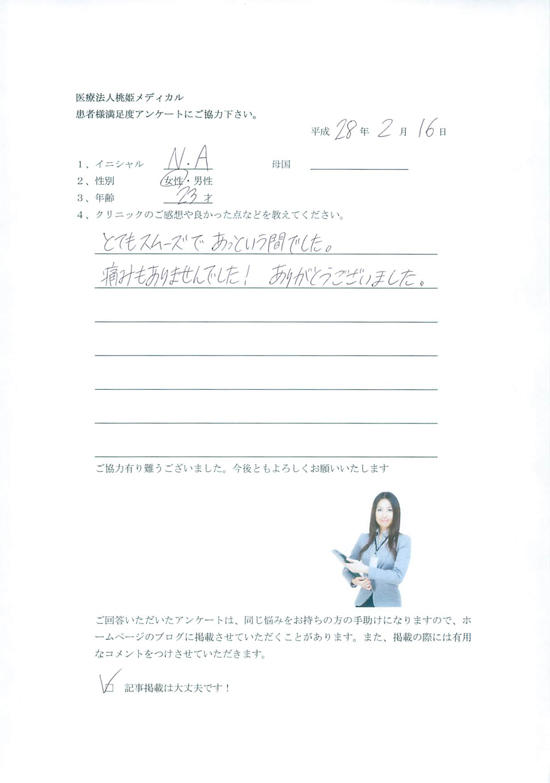 医療法人桃姫メディカル
患者様満足度アンケートにご協力下さい。
平成 28 年 2 月 16 日
1、イニシャル N.A 母国
2、性別 女性・男性
3、年齢 23 才
4、クリニックのご感想や良かった点などを教えてください。
とてもスムーズで あっという間でした。
痛みもありませんでした! ありがとうございました。
ご協力有り難うございました。今後ともよろしくお願いいたします
ご回答いただいたアンケートは、同じ悩みをお持ちの方の手助けになりますので、ホ
ームページのブログに掲載させていただくことがあります。また、掲載の際には有用
なコメントをつけさせていただきます。
☑ 記事掲載は大丈夫です!